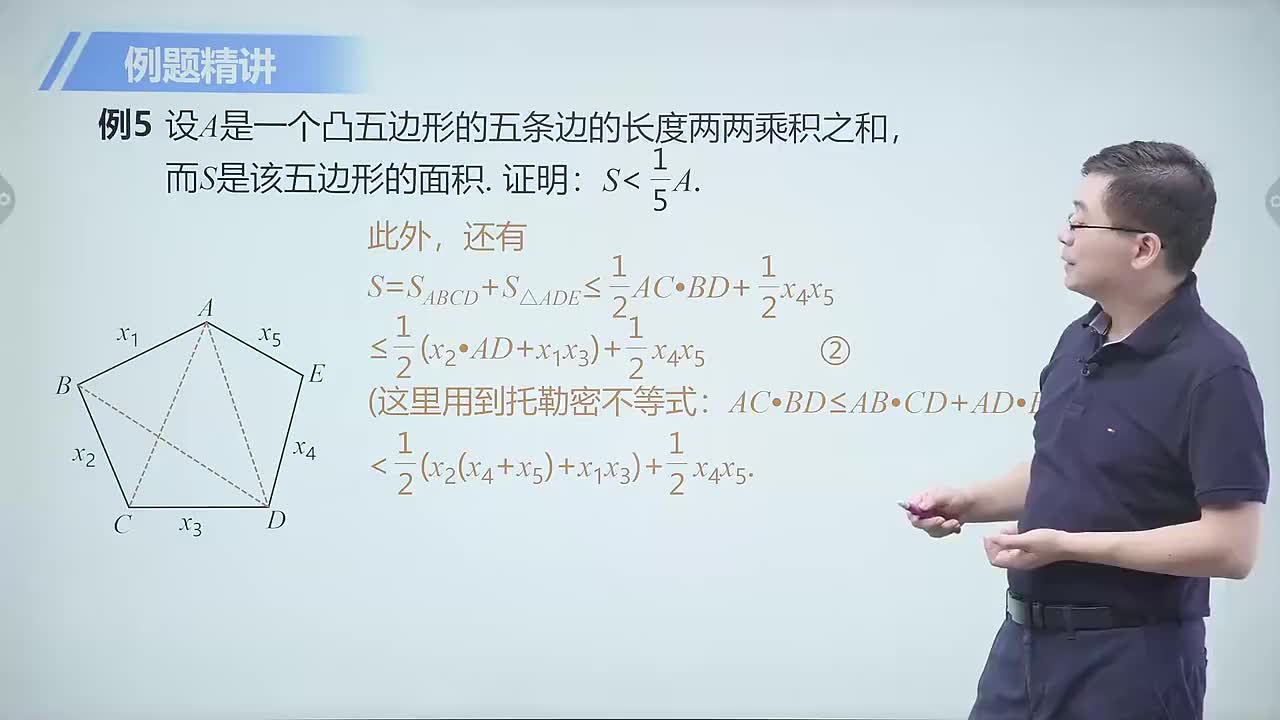 例题精讲
例5 设A是一个凸五边形的五条边的长度两两乘积之和，
而S是该五边形的面积. 证明：S< 1/5 A.
此外，还有
S=S_{ABCD}+S_{△ADE}≤ 1/2 AC•BD+ 1/2 x₄x₅
≤ 1/2 (x₂•AD+x₁x₃)+ 1/2 x₄x₅ ②
(这里用到托勒密不等式：AC•BD≤AB•CD+AD•
< 1/2 (x₂(x₄+x₅)+x₁x₃)+ 1/2 x₄x₅.
A
x₁
x₅
B
E
x₂
x₄
C
x₃
D